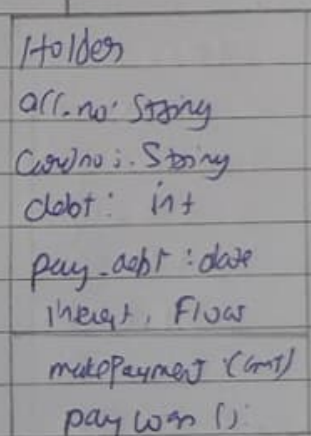 Holder
acc.no: String
Cardno: String
debt: int
pay_debt: date
interest: Float
makePayment (amt)
pay loan ()